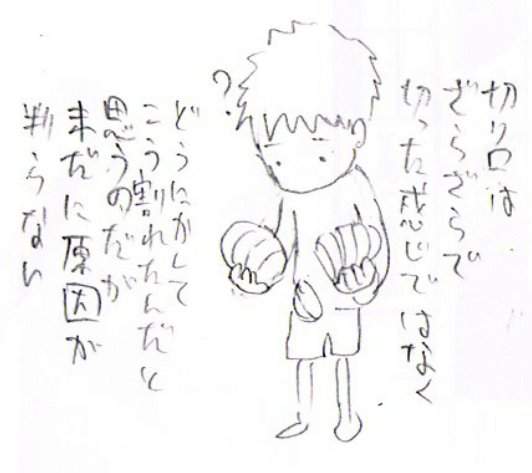 切り口は
ざらざらで
切った感じではなく
?
どうにかして
こう割れたんだと
思うのだが
未だに原因が
判らない